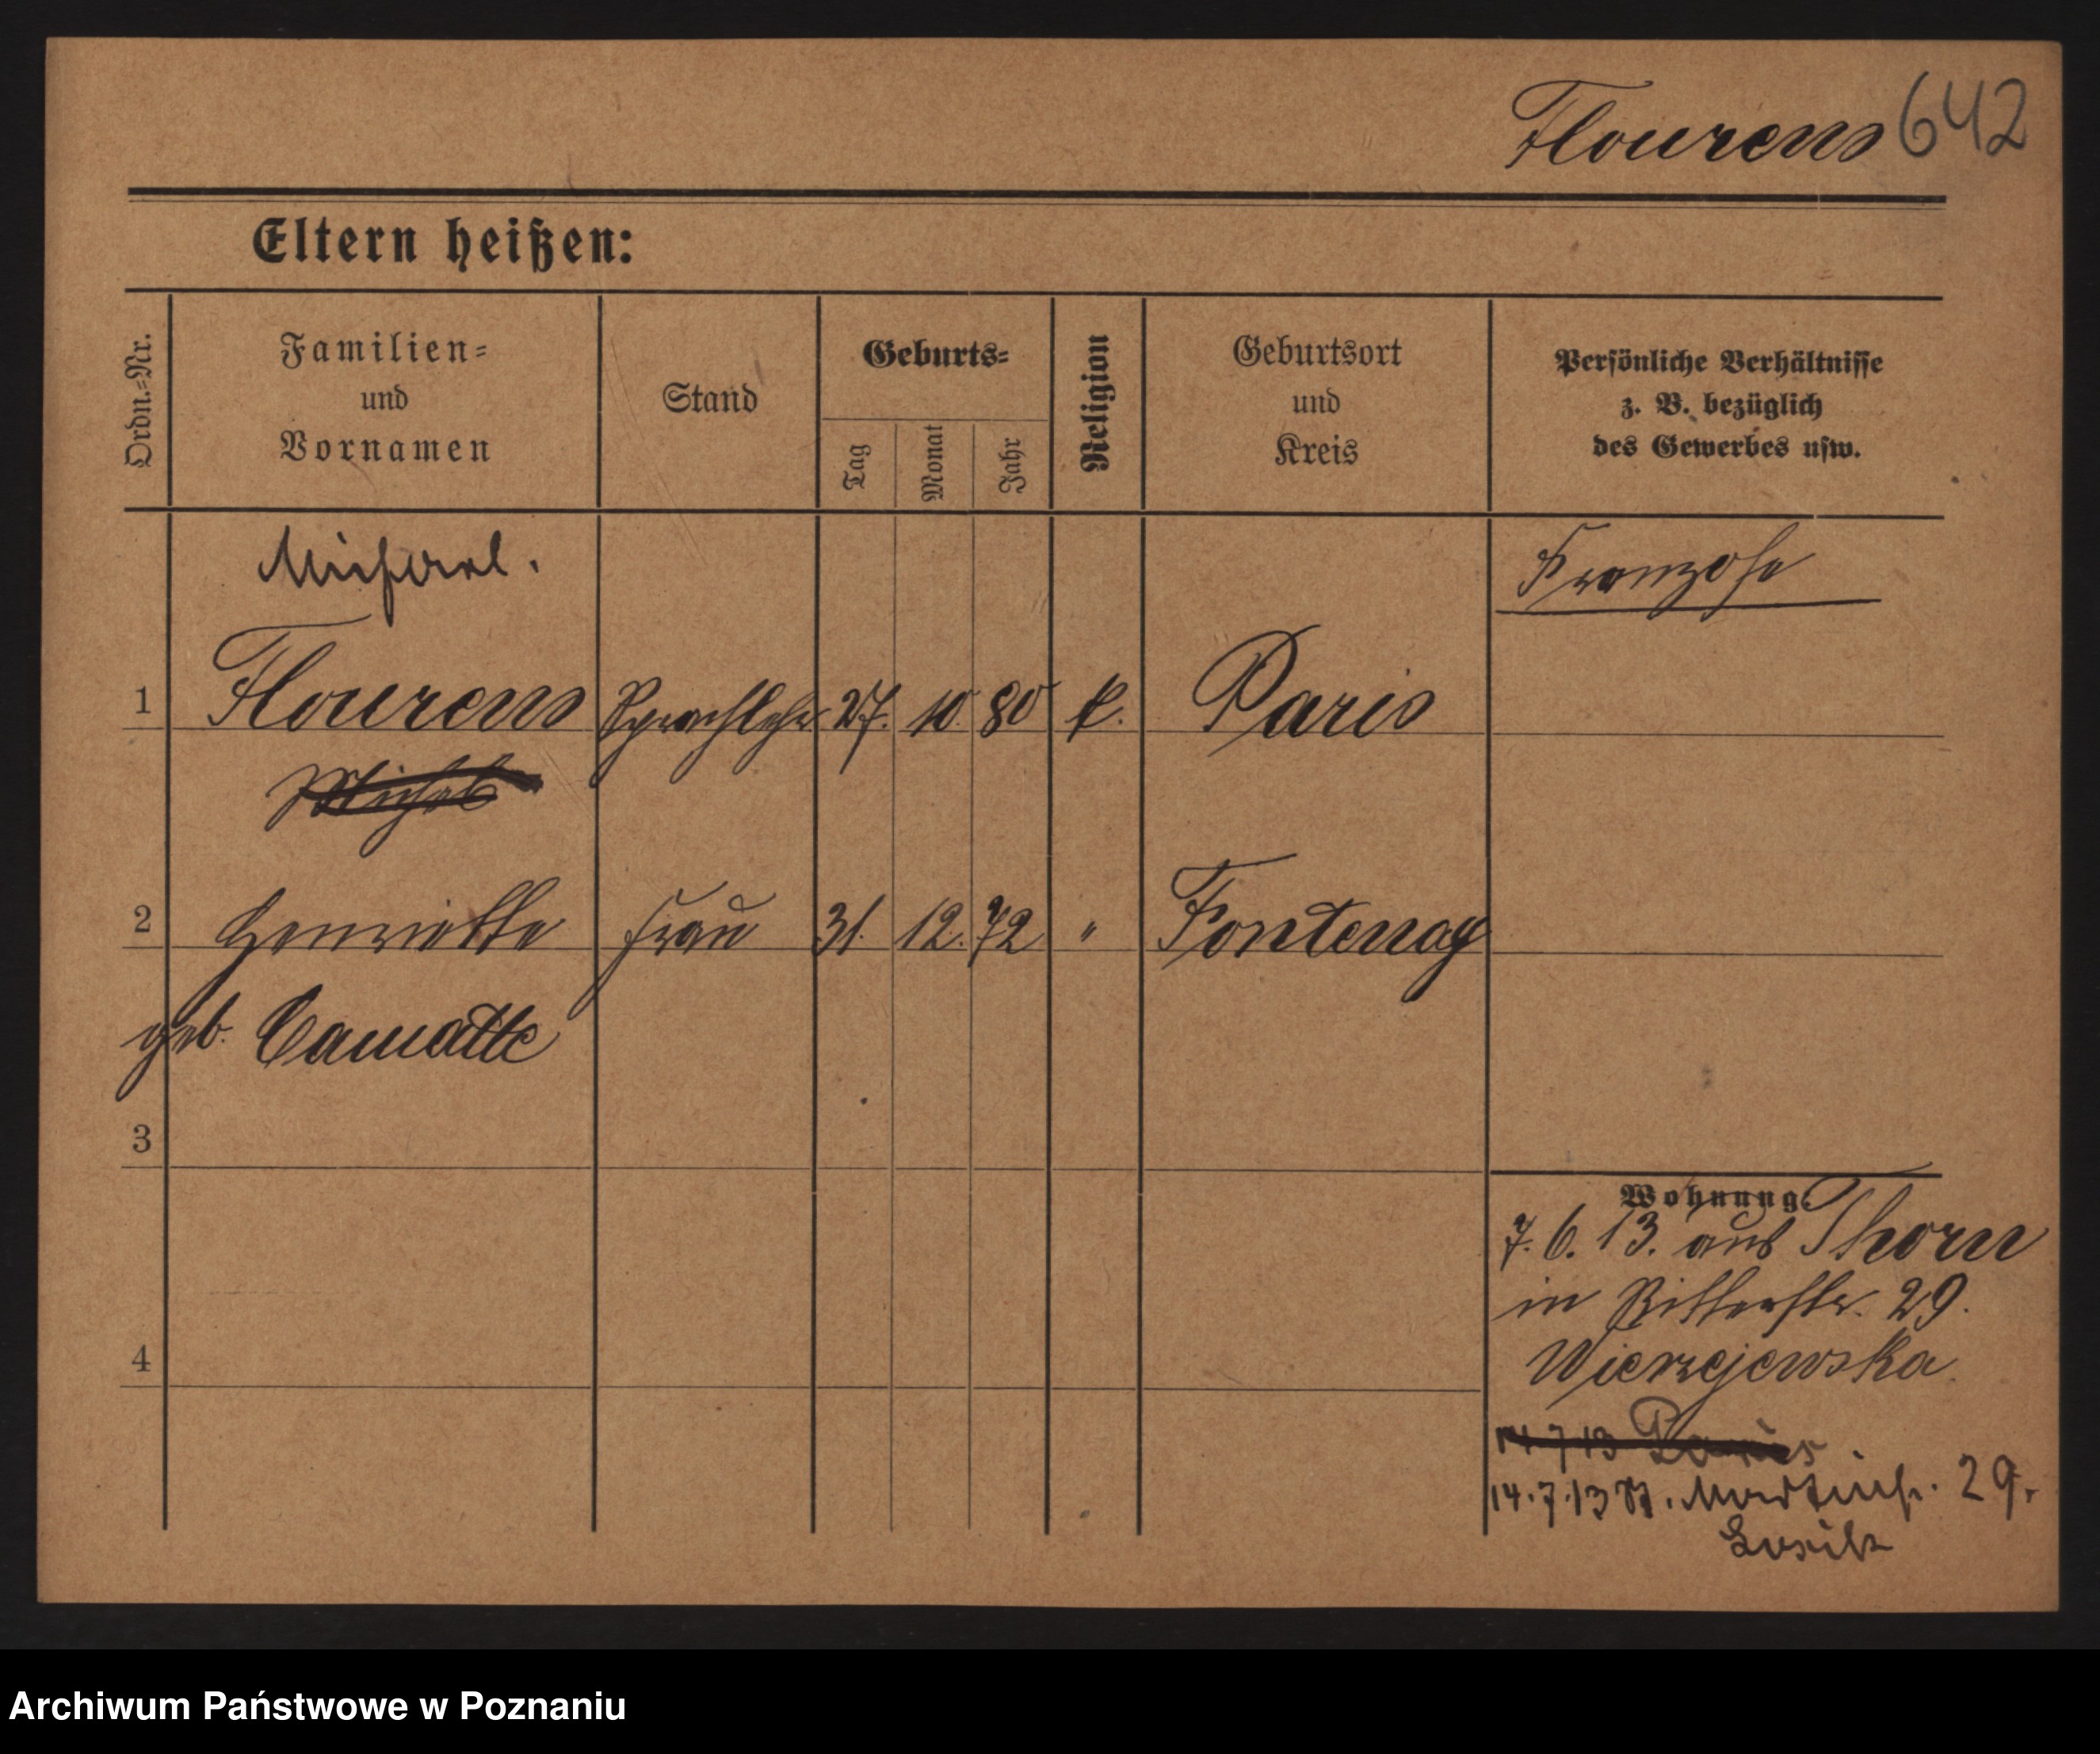 Flourens 642
Eltern heißen:
Ordn.-Nr.
Familien-
und
Vornamen
Stand
Geburts-
Tag
Monat
Jahr
Religion
Geburtsort
und
Kreis
Persönliche Verhältnisse
z. B. bezüglich
des Gewerbes usw.
Michael.
Franzose
1 Flourens Sprachlehr 27. 10. 80 k. Paris
Michel
2 Henriette Frau 31. 12. 72 " Fontenay
geb. Camatte
3
4
Wohnung:
7. 6. 13. aus Thorn
in Ritterstr. 29.
Wierzejewska
14 7 13 Paris
14. 7. 13 St. Martinstr. 29.
Archiwum Państwowe w Poznaniu